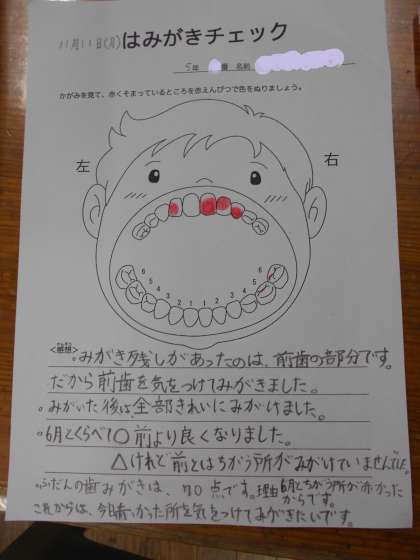 11月11日(月) はみがきチェック
5年 番 名前
かがみを見て、赤くそまっているところを赤えんぴつで色をぬりましょう。
左 右
6 6
5 5
4 4
3 2 1 1 2 3
<感想>
。みがき残しがあったのは、前歯の部分です。
だから前歯を気をつけてみがきました。
。みがいた後は、全部きれいにみがけました。
。6月とくらべて〇 前より良くなりました。
△けれど前とはちがう所がみがけていませんでした。
。ふだんの歯みがきは、70点です。理由 6月とちがう所が赤かった
からです。
これからは、今赤かった所を気をつけてみがきたいです。